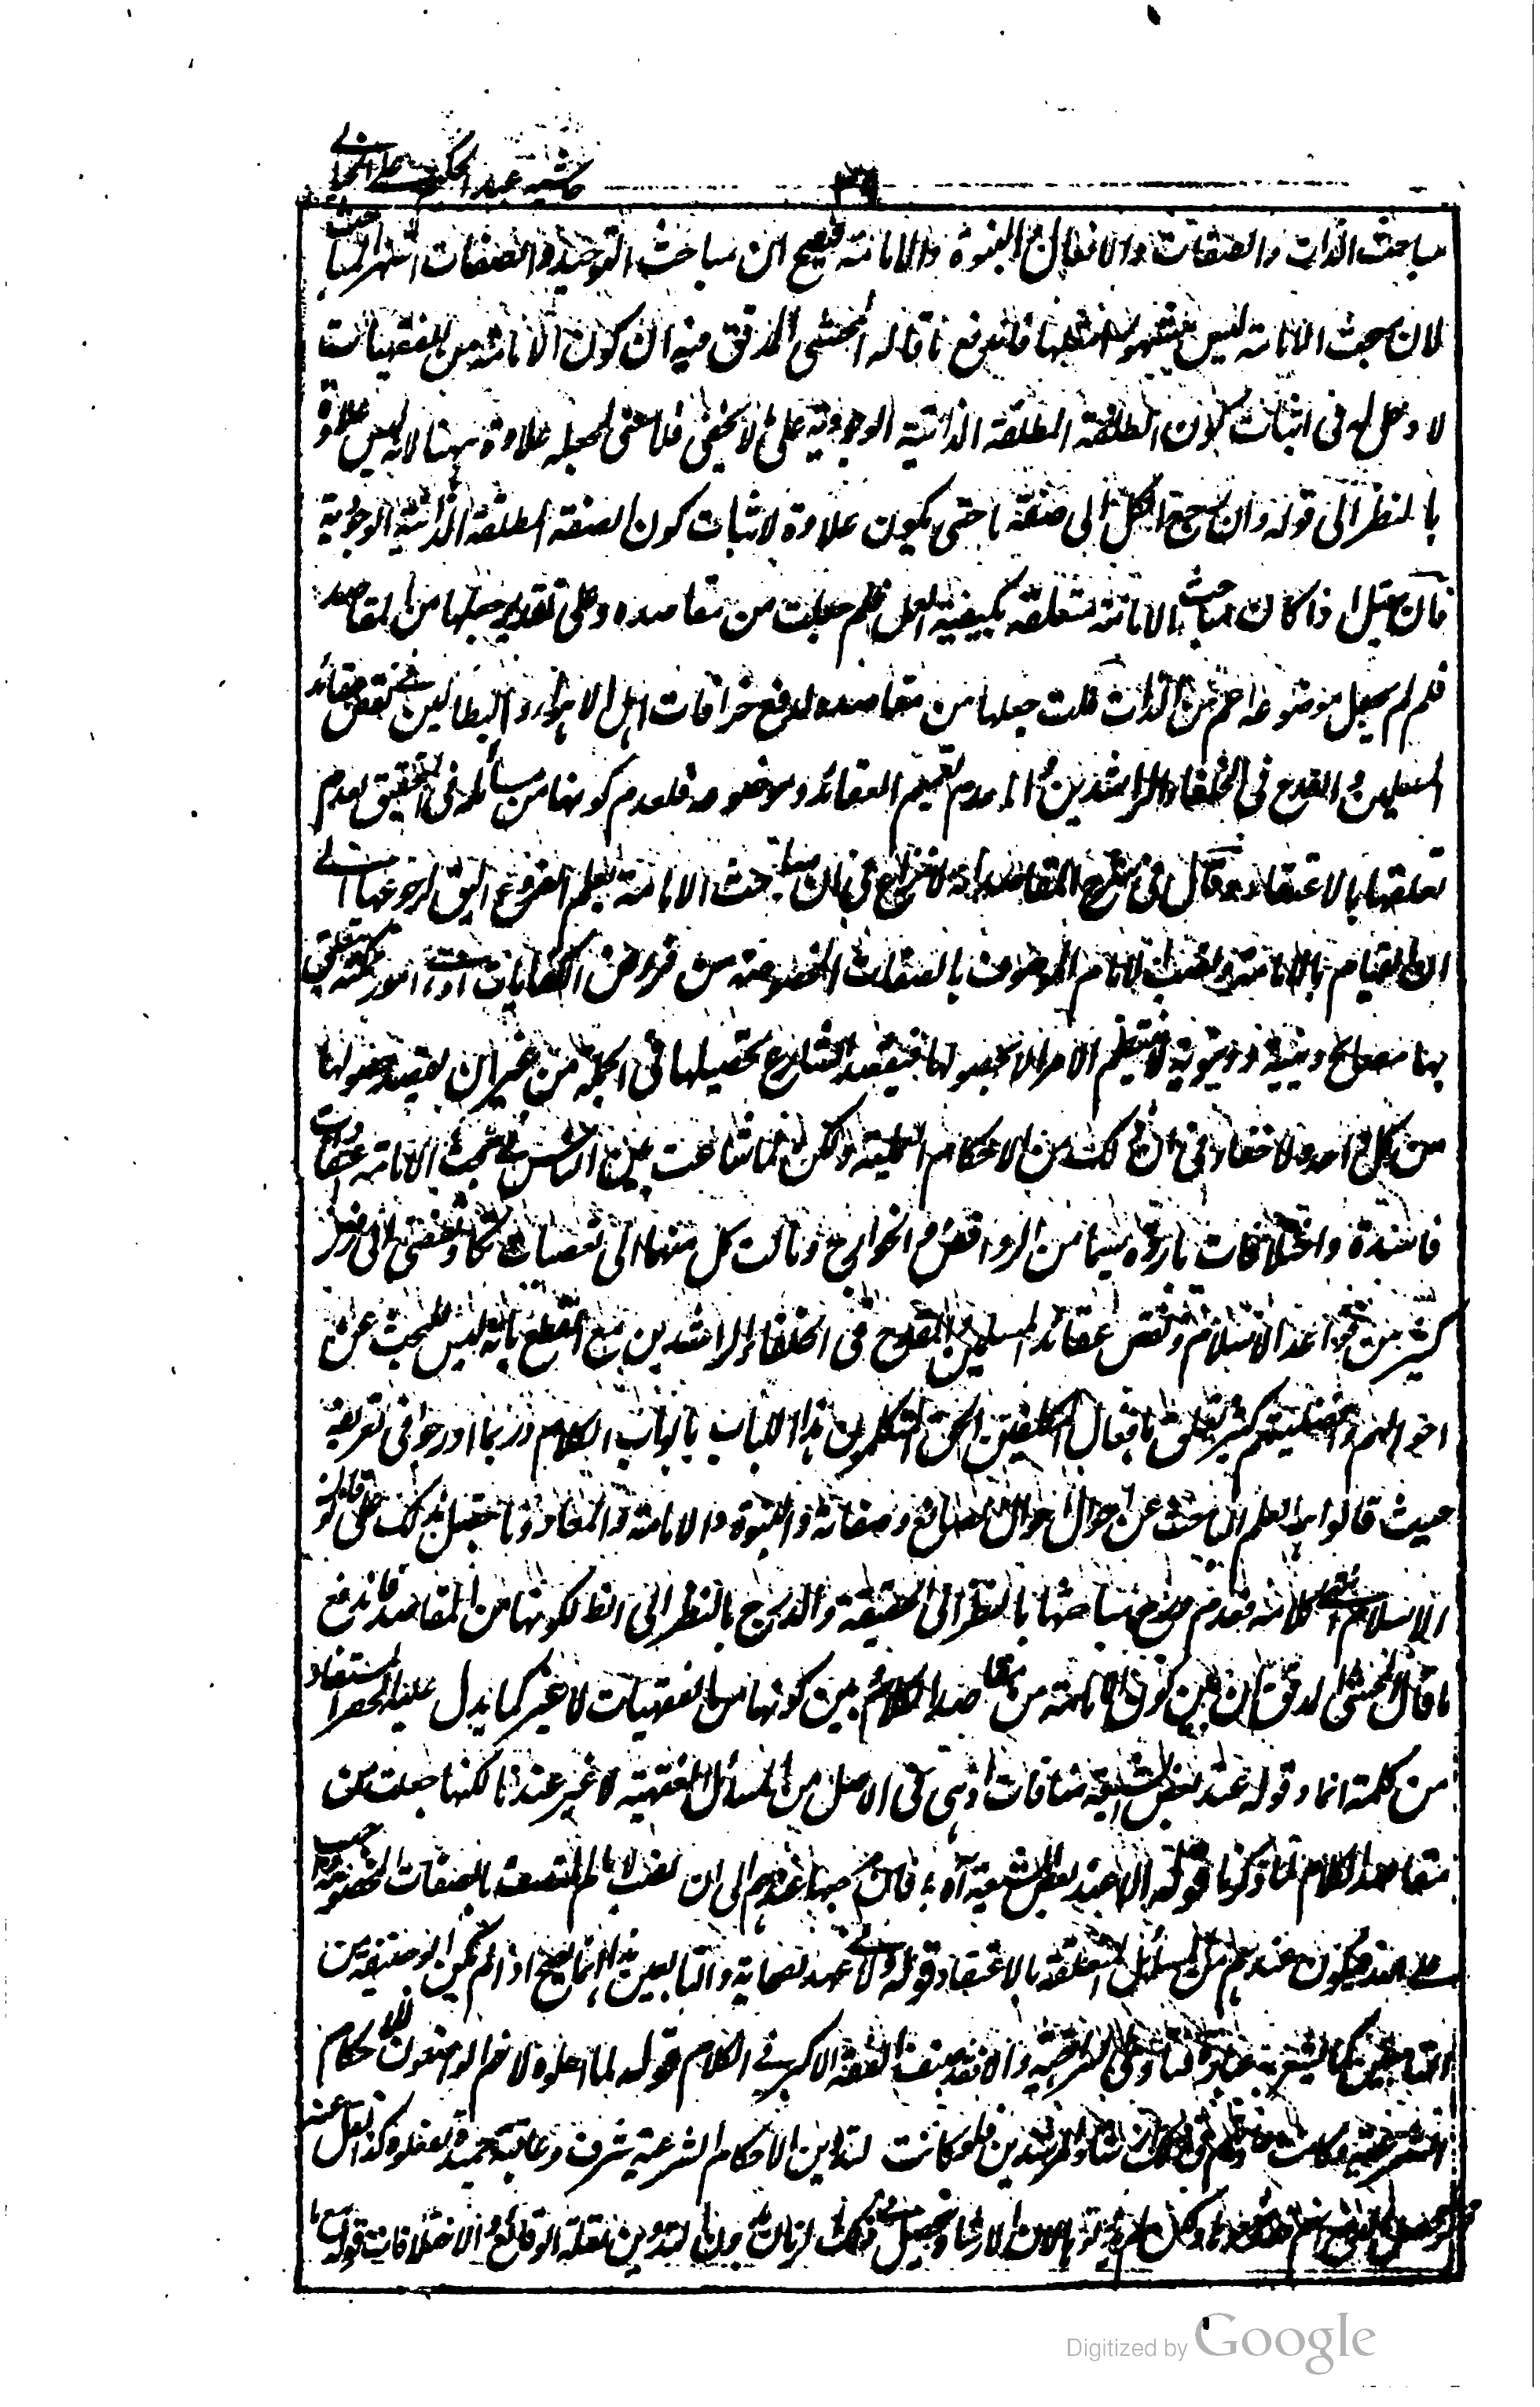 حاشیہ عبد الحکیم علی الخیالے
٣٩
مباحث الذات والصفات والافعال والنبوة والامامة فیصح ان مباحث التوحید والصفات اشهر المباحث
لان مبحث الامامة لیس بمشهور مثلها فاندفع ما قاله المحشی المدقق فیه ان کون الامامة من الفقهیات
لا دخل له فی اثبات کون الصفة المطلقة الذاتیة الوجودیة علی ما لا یخفی فلا معنی لجعله علاوة ههنا لانه لیس علاوة
بالنظر الی قوله وان رجع الکل الی صفة ما حتی یکون علاوة لاثبات کون الصفة المطلقة الذاتیة الوجودیة
فان قیل اذا کان مباحث الامامة متعلقة بکیفیة العمل فلم جعلت من مقاصده وعلی تقدیر جعلها من المقاصد
فلم لم یجعل موضوعه اعم من الذات قلت جعلها من مقاصده لدفع خرافات اهل الاهواء والبطالین فی نقض عقائد
المسلمین والقدح فی الخلفاء الراشدین واما عدم تعمیم العقائد وموضوعه فلعدم کونها من مسائله فی التحقیق لعدم
تعلقها بالاعتقاد وقال فی شرح المقاصد انه لا نزاع فی ان مباحث الامامة بعلم الفروع الیق لرجوعها الے
ان القیام بالامامة ونصب الامام الموصوف بالصفات المخصوصة من فروض الکفایات وهے امور کلیة تتعلق
بها مصالح دینیة ودنیویة لا ینتظم الامر الا بحصولها فیقصد الشارع تحصیلها فی الجملة من غیر ان یقصد حصولها
من کل احد ولا خفاء فی ان ذلک من الاحکام العملیة ولکن لما شاعت بین الناس فی بحث الامامة اعتقادات
فاسدة واختلافات باردة سیما من الروافض والخوارج ومالت کل منهما الی تعصبات تکاد تفضی الی رفض
کثیر من قواعد الاسلام ونقض عقائد المسلمین والقدح فی الخلفاء الراشدین مع القطع بانه لیس للبحث عن
احوالهم وافضلیتهم کثیر تعلق بافعال المکلفین الحق المتکلمون هذا الباب بابواب الکلام وربما ادرجوا فی تعریفه
حیث قالوا هو العلم الباحث عن احوال الصانع وصفاته والنبوة والامامة والمعاد وما یتصل بذلک علی قانون
الاسلام انتهی کلامه فعدم درج مباحثها بالنظر الی الحقیقة والدرج بالنظر الی الظ لکونها من المقاصد فاندفع
ما قال المحشی المدقق ان بین کون الامامة من مقاصد الکلام وبین کونها من الفقهیات لا غیر کما یدل علیه الحصر المستفاد
من کلمة انما وقوله عند بعض الشیعة منافات اذ هی فی الاصل من المسائل الفقهیة لا غیر عندنا لکنها جعلت من
مقاصد الکلام لما ذکرنا قوله الا عند بعض الشیعة آه فان مرجعها عندهم الی ان نصب الامام المتصف بالصفات المخصوصة واجب
علے الله فیکون عندهم من المسائل المتعلقة بالاعتقاد قوله ولا فی عهد الصحابة والتابعین هذا انما یصح اذا لم یکن ابو حنیفة من
التابعین کما یشعر به عبارة فتاوی السراجیة والا فقد صنف الفقه الاکبر فے الکلام قوله لما اهملوه لانهم الواضعون للاحکام
الشرعیة فلو کانت لتدوین الاحکام الشرعیة شرف وعاقبة حمیدة لفعلوه کذا نقل عنه
ذلک الزمان بدون التدوین لقلة الوقائع والاختلافات قوله
Digitized by Google